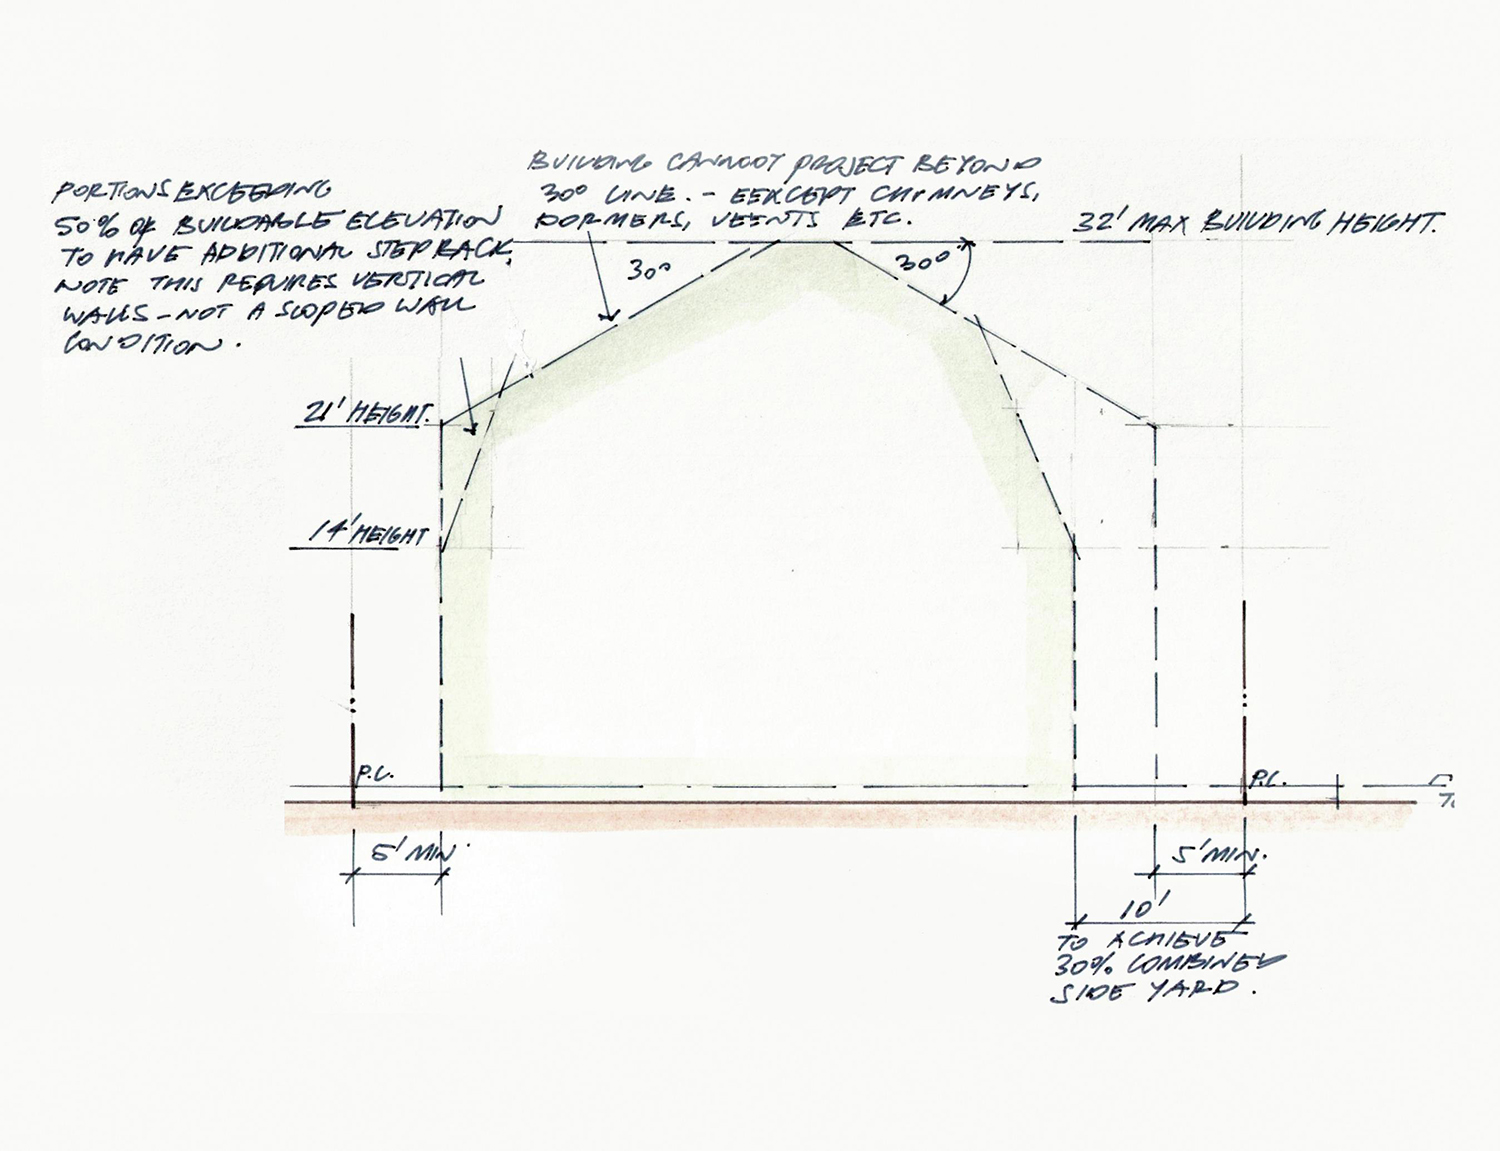 BUILDING CANNOT PROJECT BEYOND
30° LINE. - EEXCEPT CHIMNEYS,
DORMERS, VEENTS ETC.
PORTIONS EXCEEDING
50% OF BUILDABLE ELEVATION
TO HAVE ADDITIONAL STEP BACK,
NOTE THIS REQUIRES VERTICAL
WALLS - NOT A SLOPED WALL
CONDITION.
32' MAX BUILDING HEIGHT.
30°
30°
21' HEIGHT.
14' HEIGHT
P.L.
P.L.
5' MIN.
5' MIN.
10'
TO ACHIEVE
30% COMBINED
SIDE YARD.